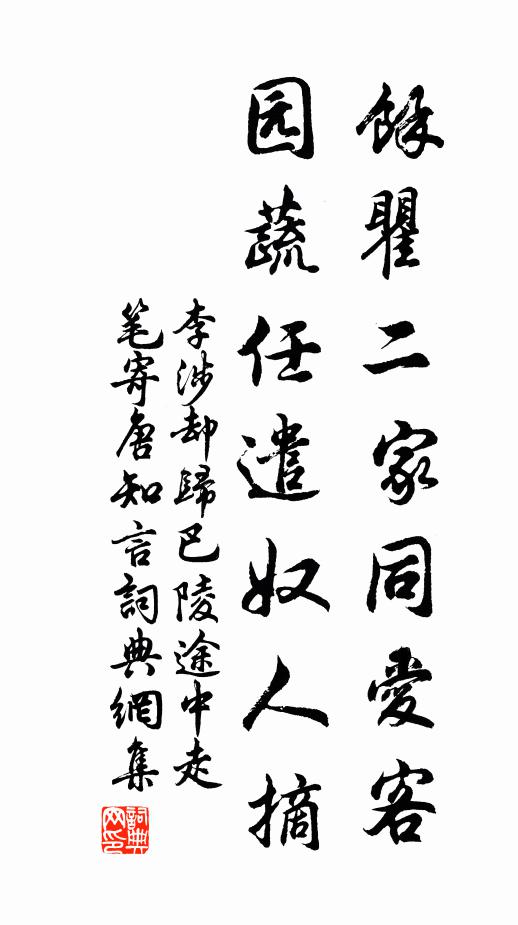 餘瞿二家同愛客
园蔬任遣奴人摘
李涉却歸巴陵途中走
笔寄唐知言詞典網集
詞典
网印